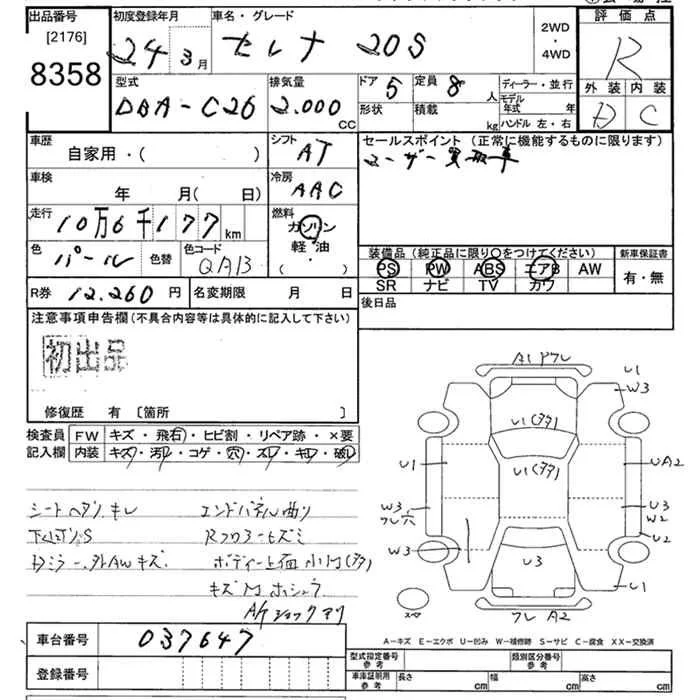 出品番号
[2176]
8358
初度登録年月
24 3月
車名・グレード
セレナ 20S
2WD
・
4WD
評価点
R
外装 内装
D C
型式
DBA-C26
排気量
2.000 CC
ドア 5
定員 8 人
形状
積載 kg
ディーラー・並行
モデル
年式 年
ハンドル 左・右
車歴
自家用・( )
シフト
AT
セールスポイント (正常に機能するものに限ります)
ユーザー買取車
車検
年 月(日)
冷房
AAC
走行
10万6千177km
燃料
ガソリン
軽・油
・( )
色
パール
色替
色コード
QAB
装備品(純正品に限り○をつけてください)
PS PW ABS エアB AW
SR ナビ TV カワ
新車保証書
有・無
R券 12.260 円
名変期限 月 日
後日品
注意事項申告欄(不具合内容等は具体的に記入して下さい)
初出品
修復歴 有 〔箇所 〕
検査員
記入欄
FW キズ・飛石・ヒビ割・リペア跡・×要
内装 キズ・汚レ・コゲ・穴・スレ・キレ・破レ
エンドパネル曲り
Rフロアーヒズミ
A1 Pフレ
U1
W3
U1(多)
U1(多)
U1
UA2
W3
フレ穴
U3
W2
U2
W3
U3
U1
フレ A2
A-キズ E-エクボ U-凹み W-補修跡 S-サビ C-腐食 XX-交換済
車台番号 037647
登録番号
型式指定番号
参考
類別区分番号
参考
車庫証明用
参考
長さ cm
幅 cm
高さ cm